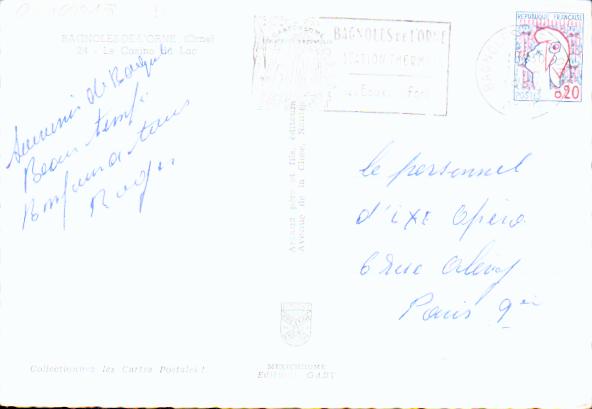 BAGNOLES-DE-L'ORNE (Orne)
24 - Le Casino du Lac
Souvenir de Bagnoles
Beau temps
Bonjour à tous
Roger
BAGNOLES DE L'ORNE
STATION THERMALE
REPUBLIQUE FRANÇAISE
POSTES 0,20
BAGNOLES
Artaud père et fils, éditeurs
Avenue de la Close, Nantes
le personnel
d'ixe Opéra
6 rue
Paris 9e
Collectionnez les Cartes Postales !
MEXICHROME
Editions GABY